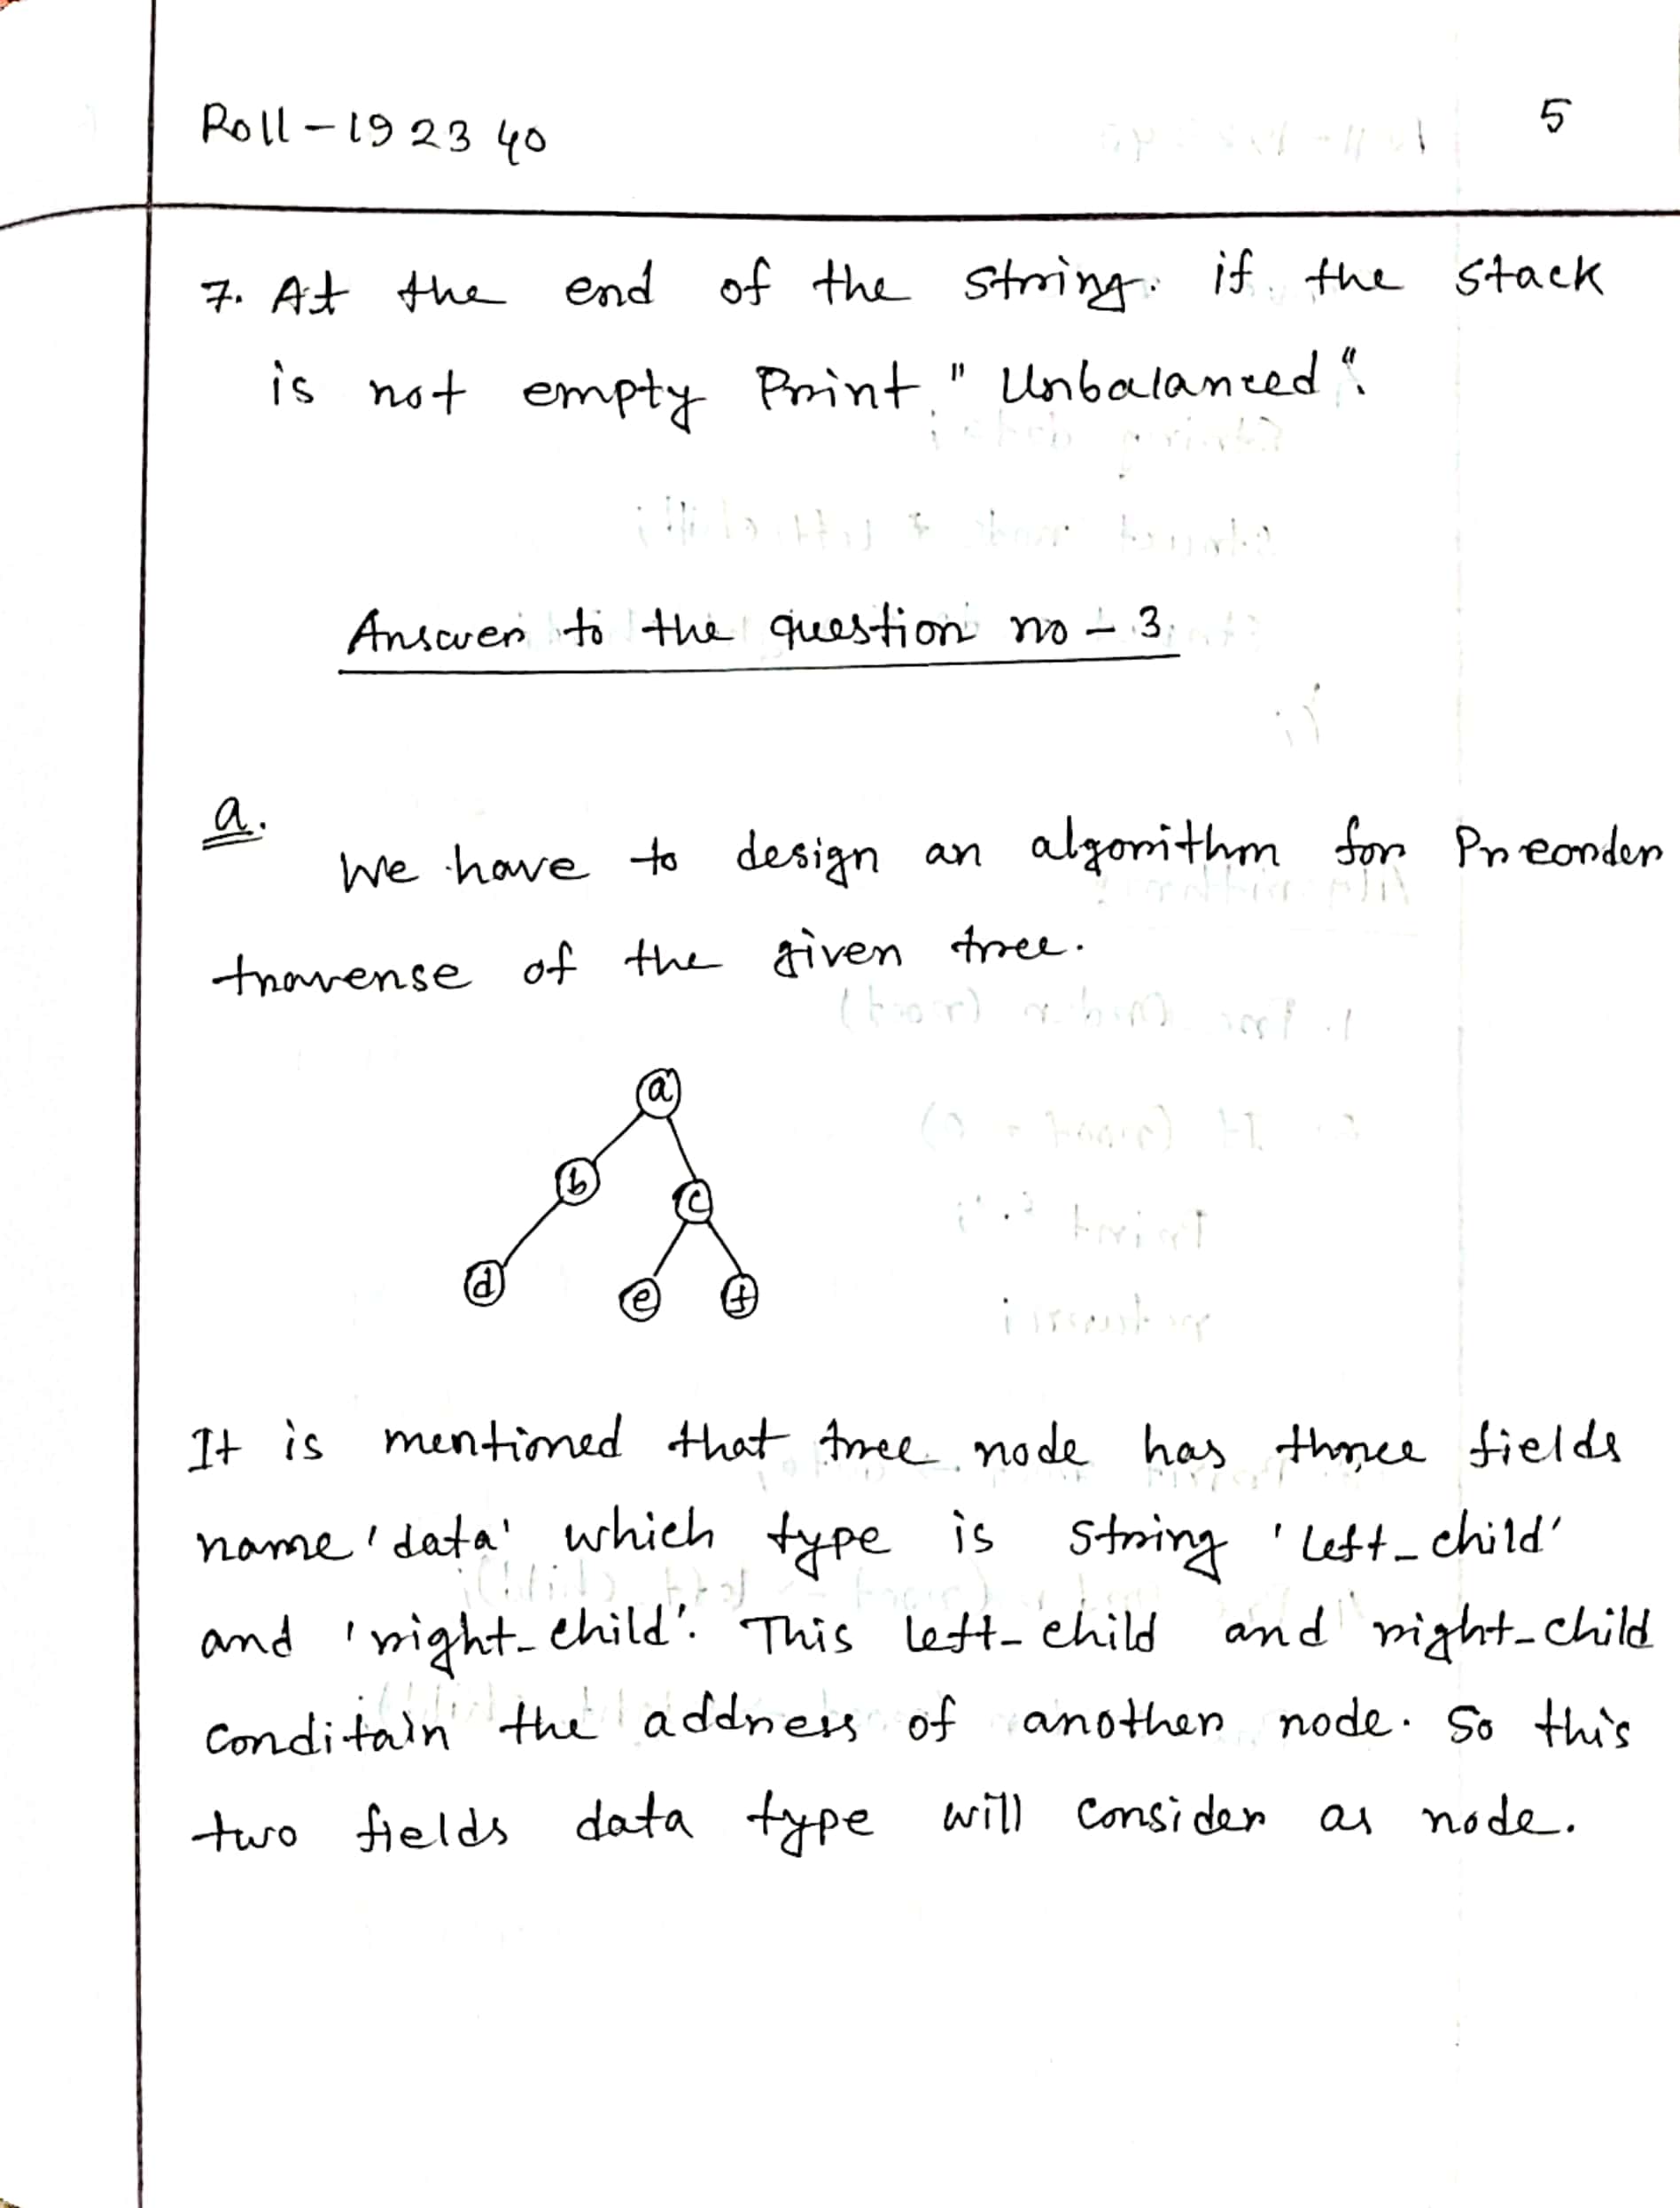 Roll-192340
5
7. At the end of the string. if the stack
is not empty Print "Unbalanced".
Answer to the question no - 3
a.
We have to design an algorithm for Preorder
traverse of the given tree.
a
b
c
d
e
f
It is mentioned that tree node has three fields
name 'data' which type is string 'left_child'
and 'right_child'. This left_child and right_child
conditain the address of another node. So this
two fields data type will consider as node.